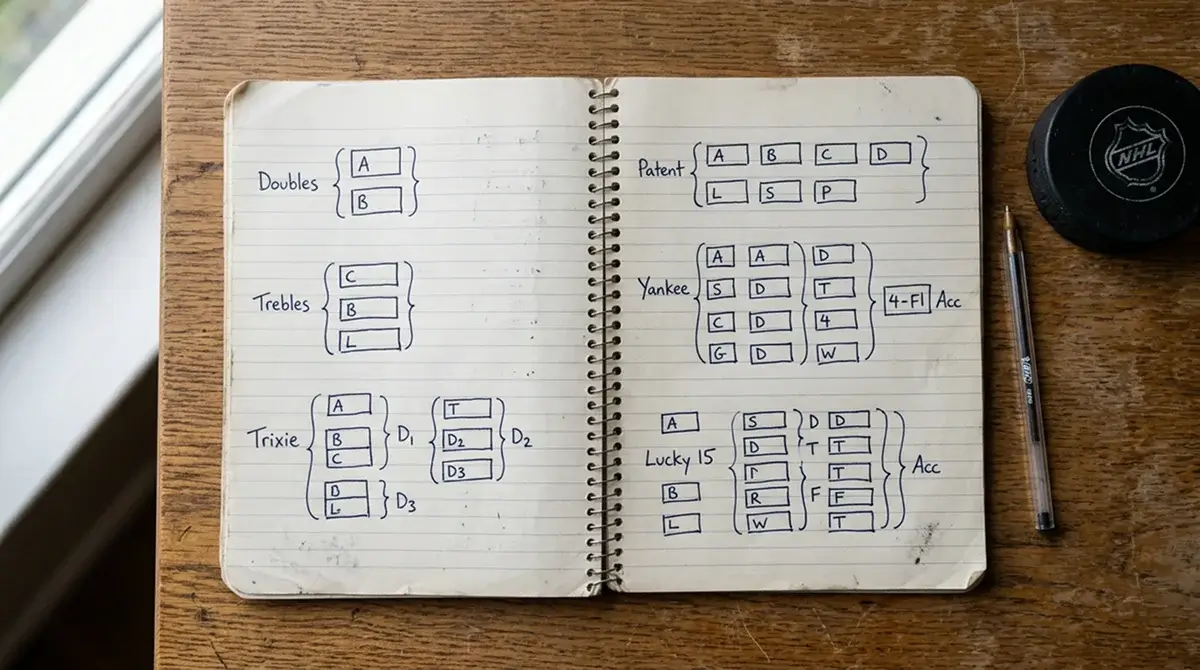 Doubles
A
B
Trebles
C
B
L
Trixie
A
B
C
D₁
B
L
D₃
T
D2
D3
D₂
Patent
A B C D
L S P
Yankee
A A D
S D T
C D 4
G D W
4-F1 Acc
A
Lucky 15
B
L
S D D
D T T
T
R F F
W T
Acc
NHL
BIC